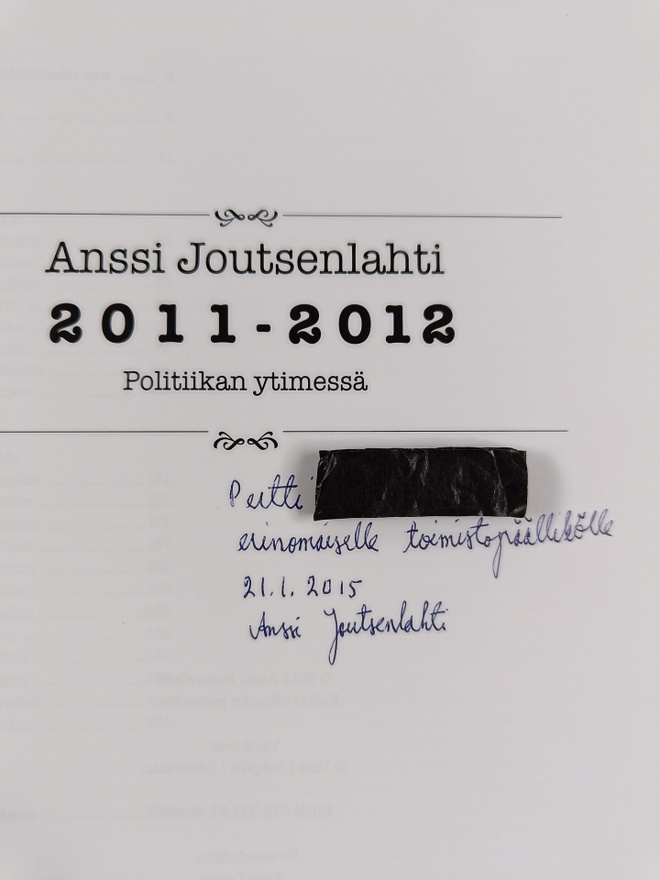 Anssi Joutsenlahti
2011-2012
Politiikan ytimessä
Pertti
erinomaiselle toimistopäällikölle
21.1.2015
Anssi Joutsenlahti